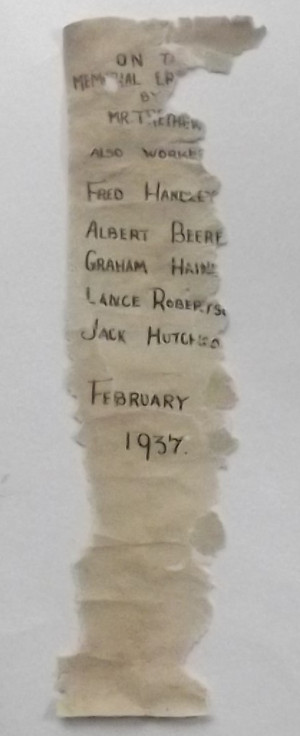 ON T
MEMORIAL ER
BY
MR.
ALSO WORKE
FRED HANDLEY
ALBERT BEERE
GRAHAM HAINE
LANCE ROBERTSO
JACK HUTCH
FEBRUARY
1937.